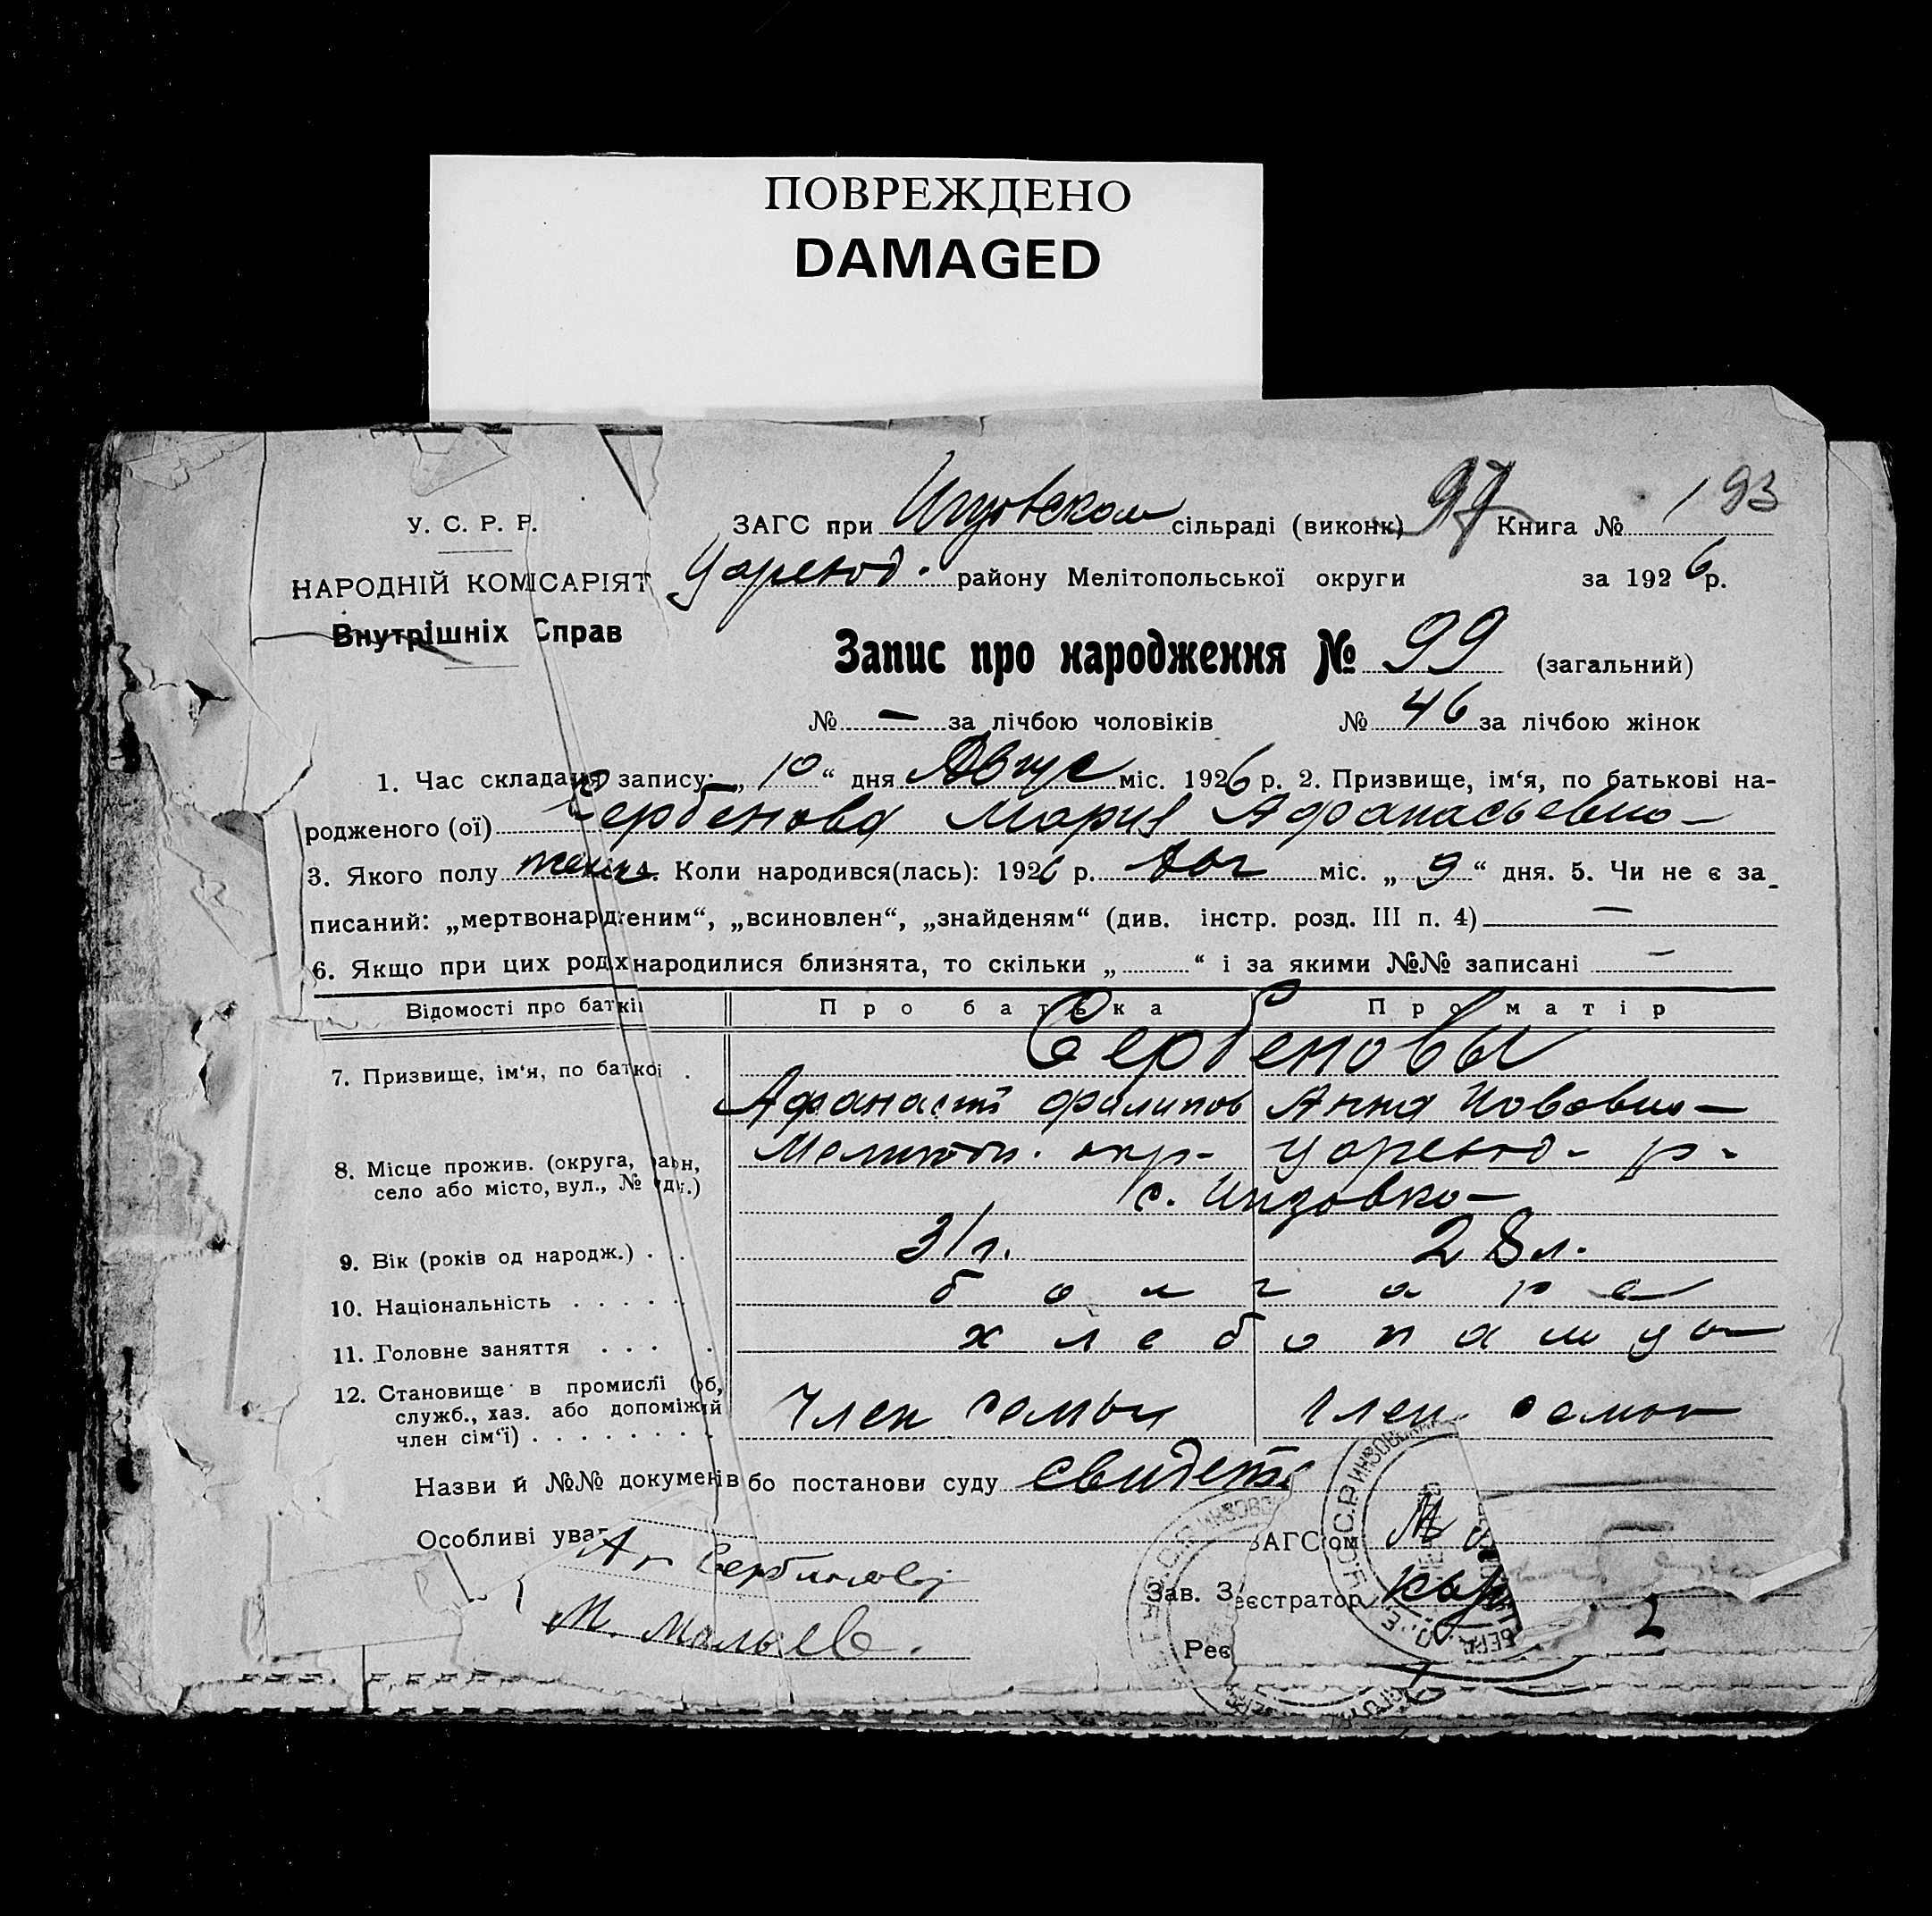 ПОВРЕЖДЕНО
DAMAGED
У. С. Р. Р.
НАРОДНІЙ КОМІСАРІЯТ
Внутрішніх Справ
ЗАГС при Инзовском сільраді (виконк) 97 Книга № 1 93
Царевод. району Мелітопольської округи за 1926 р.
Запис про народження № 99 (загальний)
№ — за лічбою чоловіків № 46 за лічбою жінок
1. Час складання запису: „10“ дня Авгус міс. 1926 р. 2. Призвище, ім‘я, по батькові на-
родженого (ої) Сербенова Мария Афанасьевно
3. Якого полу женск. Коли народився(лась): 1926 р. Авг міс. „9“ дня. 5. Чи не є за-
писаний: „мертвонардженим“, „всиновлен“, „знайденям“ (див. інстр. розд. III п. 4) —
6. Якщо при цих родах народилися близнята, то скільки „ “ і за якими №№ записані —
Відомості про батків Про батька Про матір
Сербеновы
7. Призвище, ім‘я, по баткові .
Афанасий Филипов Анна Иововно
8. Місце прожив. (округа, район, село або місто, вул., № буд.) Мелитоп. окр- Царевод- р-
с. Инзовко
9. Вік (років од народж.) . . 31 л. 28 л.
10. Національність . . . . . болгаре
11. Головне заняття . . . . хлебопашцы
12. Становище в промислі (об,
служб., хаз. або допоміжний
член сім‘ї) . . . . . . . . Член семьи Член семьи
Назви й №№ документів бо постанови суду свидет
Особливі уваг ЗАГС‘ом
Аг Сербинов
Зав. З еєстратор
М. Мальев.
Реє 2